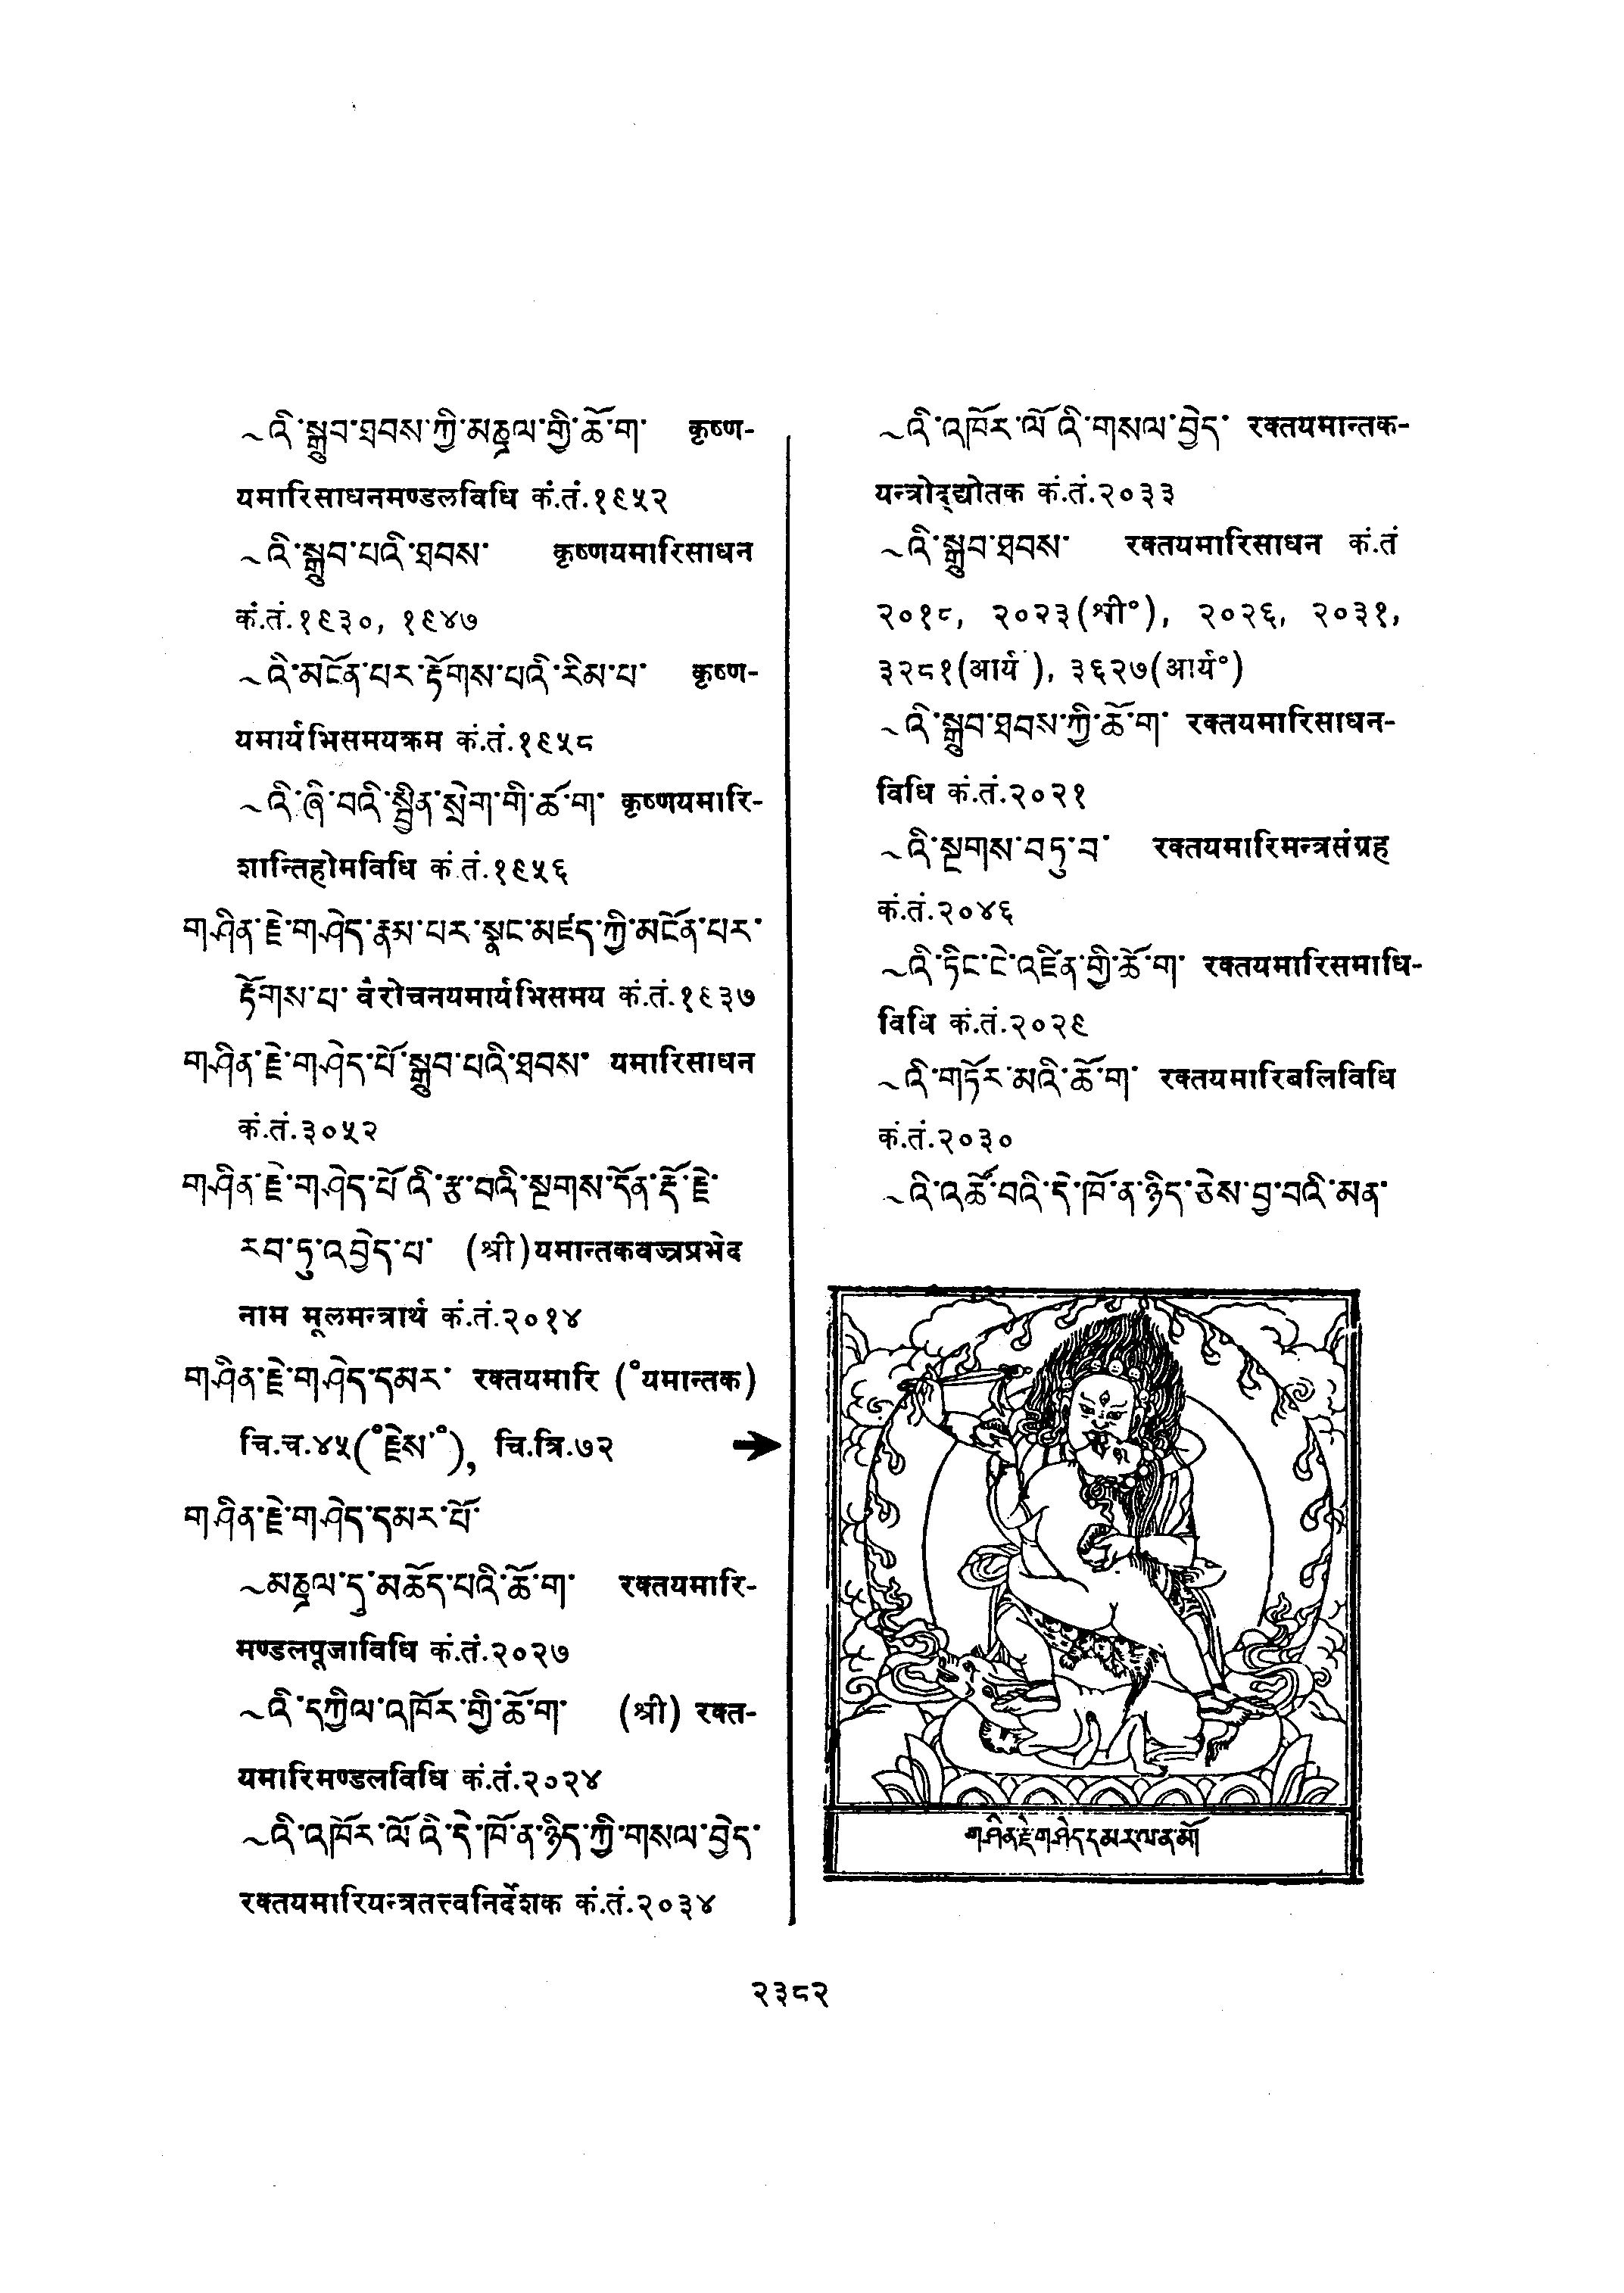 ~འི་སྒྲུབ་ཐབས་ཀྱི་མཎྜལ་གྱི་ཆོ་ག་ कृष्ण-
यमारिसाधनमण्डलविधि कं.तं.१९५२
~འི་སྒྲུབ་པའི་ཐབས་ कृष्णयमारिसाधन
कं.तं.१९३०, १९४७
~འི་མངོན་པར་རྟོགས་པའི་རིམ་པ་ कृष्ण-
यमार्यभिसमयक्रम कं.तं.१९५८
~འི་ཞི་བའི་སྦྱིན་སྲེག་གི་ཆོ་ག་ कृष्णयमारि-
शान्तिहोमविधि कं.तं.१९५६
གཤིན་རྗེ་གཤེད་རྣམ་པར་སྣང་མཛད་ཀྱི་མངོན་པར་
རྟོགས་པ་ वैरोचनयमार्यभिसमय कं.तं.१९३७
གཤིན་རྗེ་གཤེད་པོ་སྒྲུབ་པའི་ཐབས་ यमारिसाधन
कं.तं.३०५२
གཤིན་རྗེ་གཤེད་པོའི་རྩ་བའི་སྔགས་དོན་རྡོ་རྗེ་
རབ་ཏུ་འབྱེད་པ་ (श्री)यमान्तकवज्रप्रभेद
नाम मूलमन्त्रार्थ कं.तं.२०१४
གཤིན་རྗེ་གཤེད་དམར་ रक्तयमारि (°यमान्तक)
चि.च.४५(°རྗེས་°), चि.त्रि.७२ ➔
གཤིན་རྗེ་གཤེད་དམར་པོ་
~མཎྜལ་དུ་མཆོད་པའི་ཆོ་ག་ रक्तयमारि-
मण्डलपूजाविधि कं.तं.२०२७
~འི་དཀྱིལ་འཁོར་གྱི་ཆོ་ག་ (श्री) रक्त-
यमारिमण्डलविधि कं.तं.२०२४
~འི་འཁོར་ལོའི་དེ་ཁོ་ན་ཉིད་ཀྱི་གསལ་བྱེད་
रक्तयमारियन्त्रतत्त्वनिर्देशक कं.तं.२०३४
~འི་འཁོར་ལོའི་གསལ་བྱེད་ रक्तयमान्तक-
यन्त्रोद्द्योतक कं.तं.२०३३
~འི་སྒྲུབ་ཐབས་ रक्तयमारिसाधन कं.तं
२०१८, २०२३(श्री°), २०२६, २०३१,
३२८१(आर्य°), ३६२७(आर्य°)
~འི་སྒྲུབ་ཐབས་ཀྱི་ཆོ་ག་ रक्तयमारिसाधन-
विधि कं.तं.२०२१
~འི་སྔགས་བཏུ་བ་ रक्तयमारिमन्त्रसंग्रह
कं.तं.२०४६
~འི་ཏིང་ངེ་འཛིན་གྱི་ཆོ་ག་ रक्तयमारिसमाधि-
विधि कं.तं.२०२९
~འི་གཏོར་མའི་ཆོ་ག་ रक्तयमारिबलिविधि
कं.तं.२०३०
~འི་འཚོ་བའི་དེ་ཁོ་ན་ཉིད་ཅེས་བྱ་བའི་མན་
གཤིན་རྗེ་གཤེད་དམར་ལ་ན་མོ
२३८२